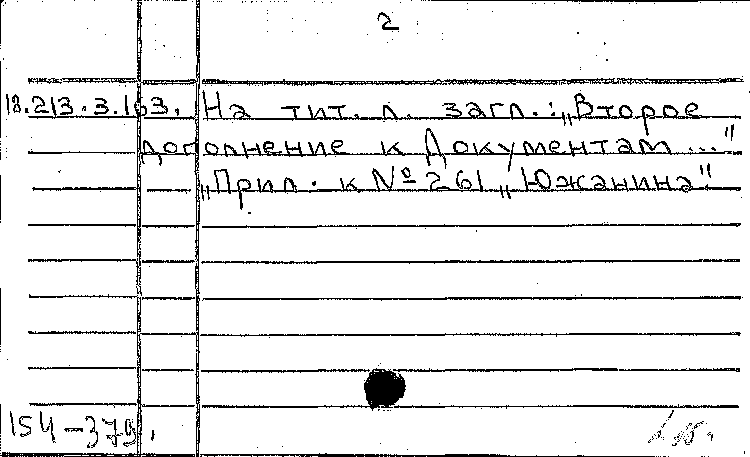 2
18.213.3.163. На тит. л. загл.: „Второе
дополнение к Документам..."
„Прил. к № 261 „Южанина".
154-379.